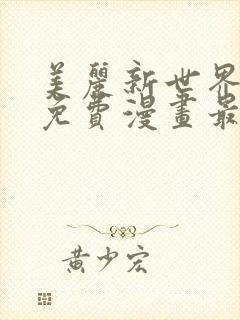 美麗新世界
免費漫畫最
黃少宏